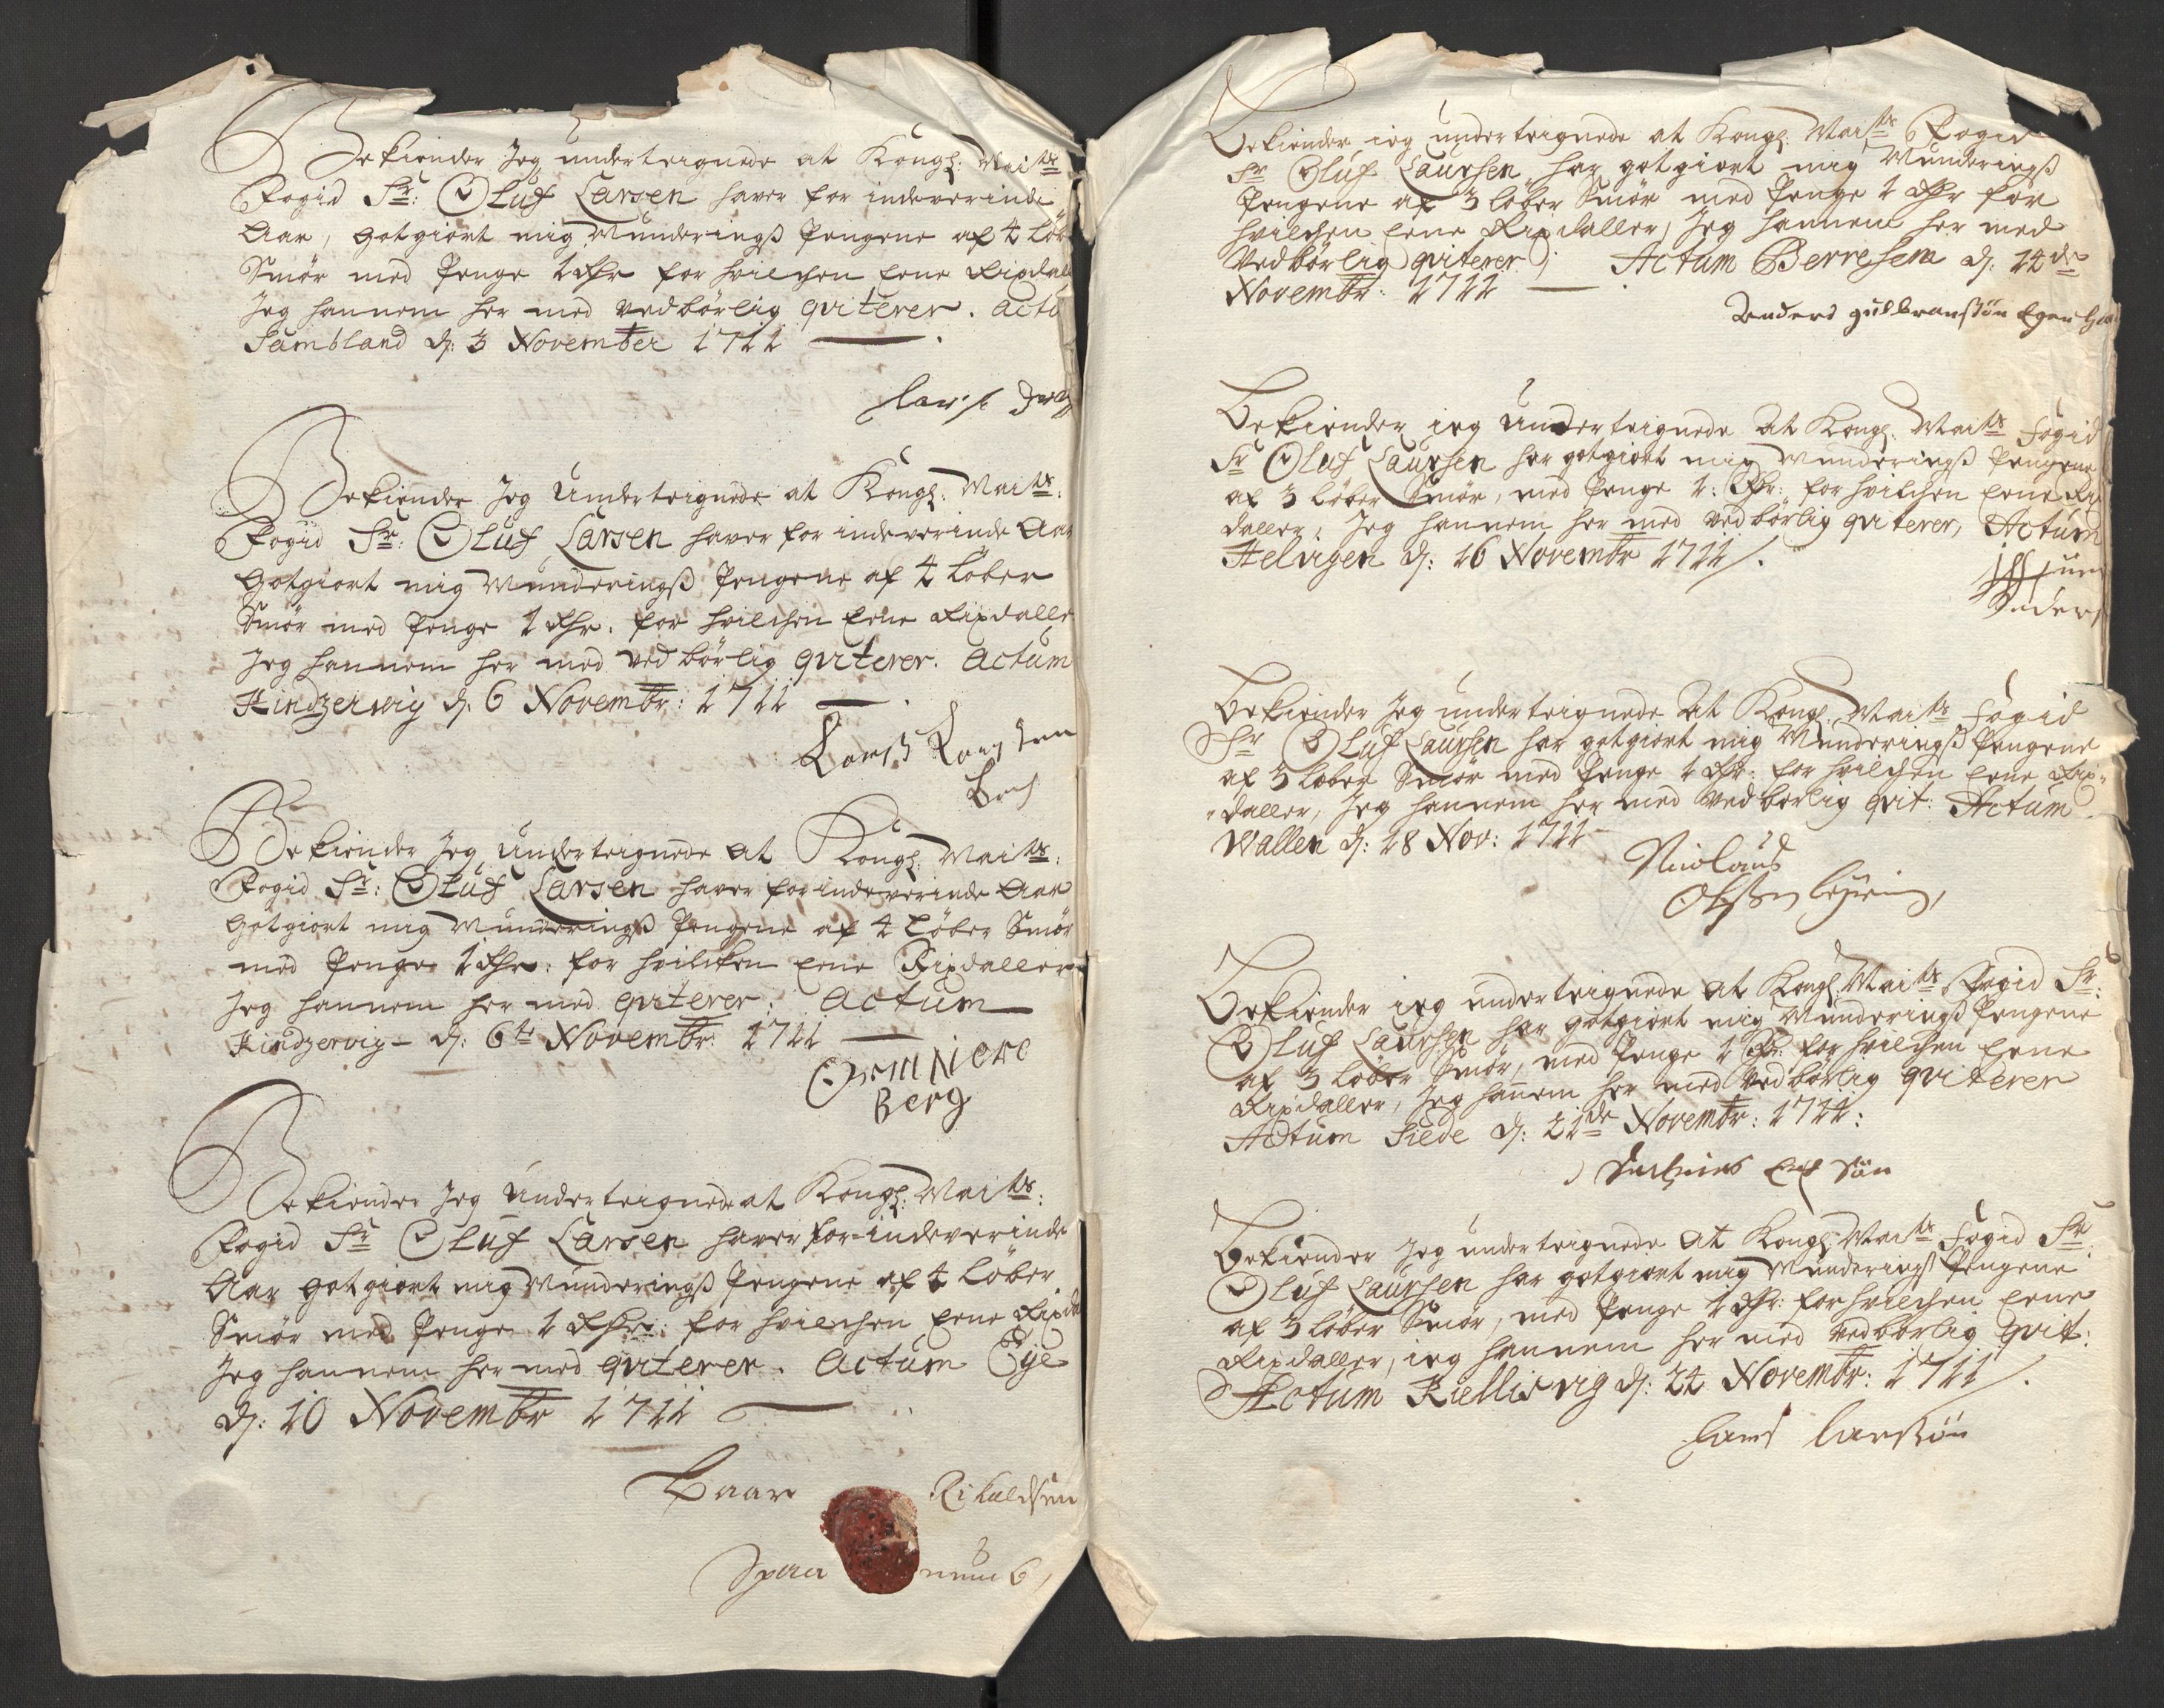 Bekiender Jeg underteignede at Kongl: Maits:
Fogid Sr: Oluf Larsen haver for indeverinde
Aar, gotgiort mig Munderings Pengene af 4 Løb
Smør med Penge 1 Rdr for hvilchen Eene Rixdal
Jeg hannem her med vedbørlig qviterer. Actu
Sambland d: 3 November 1711
Bekiender Jeg Underteignede at Kongl: Maits:
Fogid Sr: Oluf Larsen haver for indeverinde Aar
Gotgiort mig Munderings Pengene af 4 Løber
Smør med Penge 1 Rdr. for hvilchen Eene Rixdalle
Jeg hannem her med vedbørlig qviterer. Actum
Hindzervig d: 6 Novembr: 1711
Bekiender Jeg Underteignede at Kongl: Maits:
Fogid Sr: Oluf Larsen haver for indeverinde Aar
Gotgiort mig Munderings Pengene af 4 Løber Smør
med Penge 1 Rdr: for hvilcken Eene Rixdaller
Jeg hannem her med qviterer. Actum
Hindzervig d: 6te Novembr: 1711
Orm Niere
Berg
Bekiender Jeg Underteignede at Kongl: Maits:
Fogid Sr Oluf Larsen haver for indeverinde
Aar gotgiort mig Munderings Pengene af 4 Løber
Smør med Penge 1 Rdr: for hvilchen Eene Rixda
Jeg hannem her med qviterer. Actum Eye
d: 10 Novembr 1711
Baar Rikoldsen
Bekiender ieg underteignede at Kongl: Maits Fogid
Sr Oluf Laursen har gotgiort mig Munderings
Pengene af 3 løber Smør med Penge 1 Rdr for
hvilchen Eene Rixdaller, Jeg hannem her med
Vedbørlig qviterer; Actum Berresem d: 14de
Novembr: 1711
Anders gulbransøn Egen Haand
Bekiender ieg underteignede at Kongl. Maits Fogid
Sr Oluf Laursen har gotgiort mig Munderings Pengene
af 3 løber Smør, med Penge 1: Rdr: for hvilchen Eene Rix
daller, Jeg hannem her med vedbørlig qviterer, Actum
Helvigen d: 16 Novembr 1711/.
Bekiender Jeg underteignede at Kongl. Maits Fogid
Sr Oluf Laursen har gotgiort mig Munderings Pengene
af 3 løber Smør med Penge 1 Rdr: for hvilchen Eene Rix-
daller, Jeg hannem her med Vedbørlig qvit: Actum
Wallen d: 18 Nov: 1711
Nicolaus
Bekiender ieg underteignede at Kongl: Maits Fogid Sr:
Oluf Laursen har gotgiort mig Munderings Pengene
af 3 Løber Smør, med Penge 1 Rdr: for hvilchen Eene
Rixdaller, Jeg hannem her med vedbørlig qviterer
Actum Siede d: 21de Novembr: 1711:
Bekiender Jeg underteignede at Kongl: Maits Fogid Sr:
Oluf Laursen har gotgiort mig Munderings Pengene
af 3 løber Smør, med Penge 1 Rdr: for hvilchen Eene
Rixdaller, ieg hannem her med vedbørlig qvit:
Actum Kiellisvig d: 24 Novembr: 1711/.
Larss Larssøn